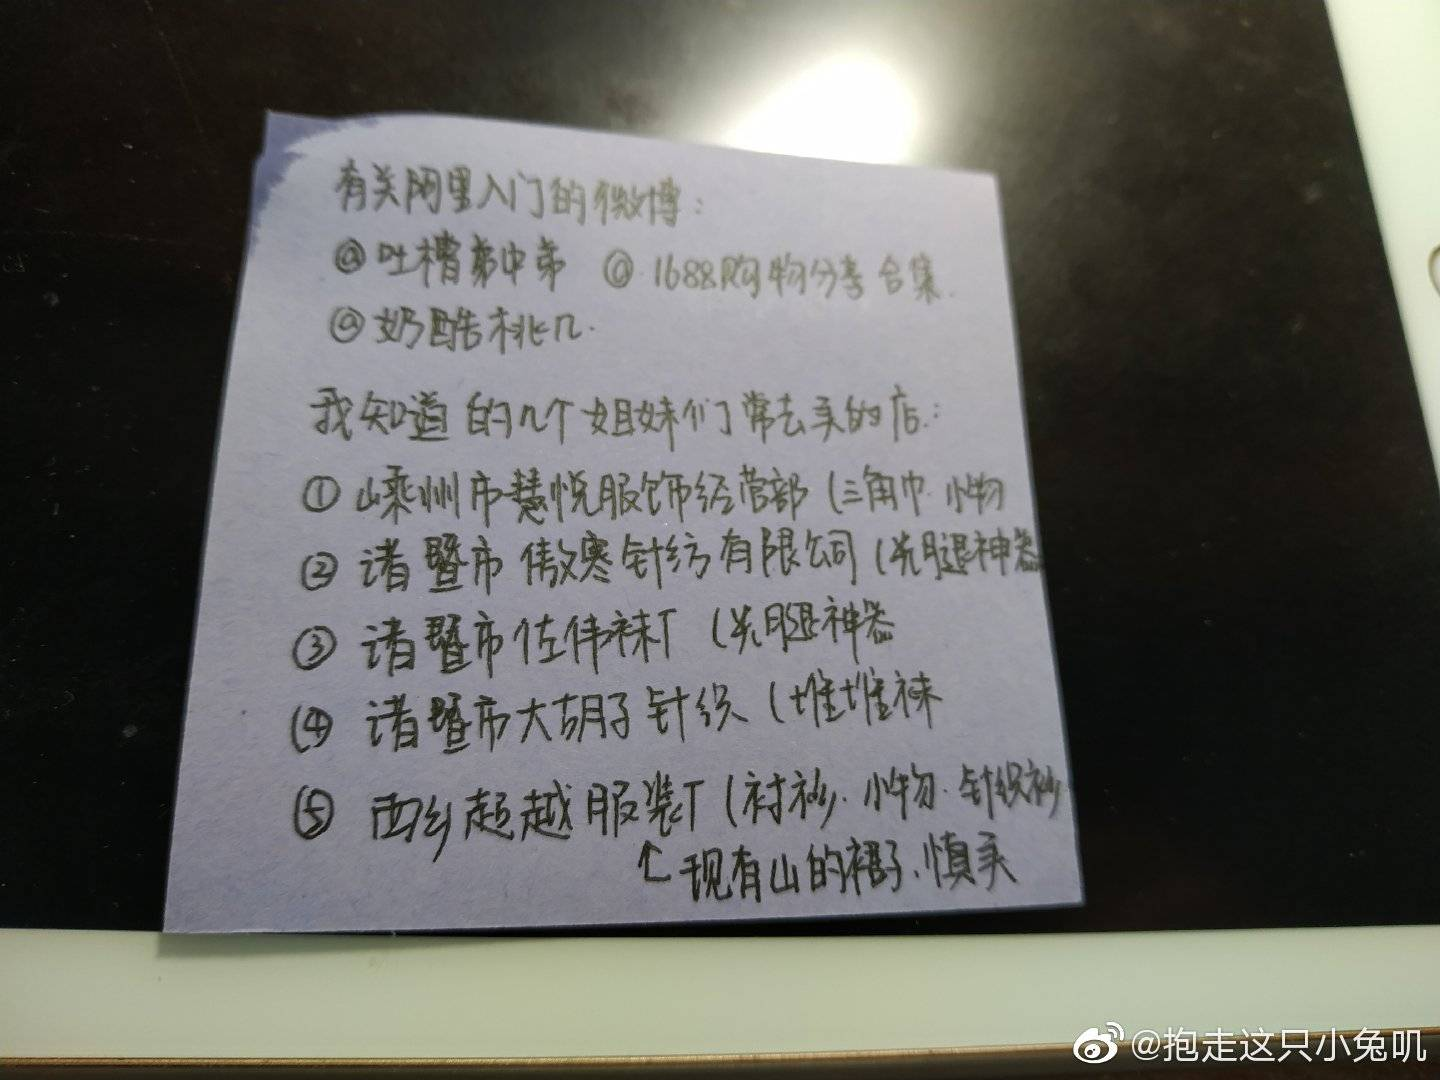 有关阿里入门的微博:
@吐槽弟中弟 @1688购物分享合集.
@奶酷桃几.
我知道的几个姐妹们常去买的店:
① 嵊州市慧悦服饰经营部 (三角巾.小物
② 诸暨市傲寒针纺有限公司 (光腿神器
③ 诸暨市佐伟袜厂 (光腿神器
④ 诸暨市大胡子针织 (堆堆袜
⑤ 西乡超越服装厂 (衬衫.小物.针织衫
↑现有山的裙子.慎买
@抱走这只小兔叽